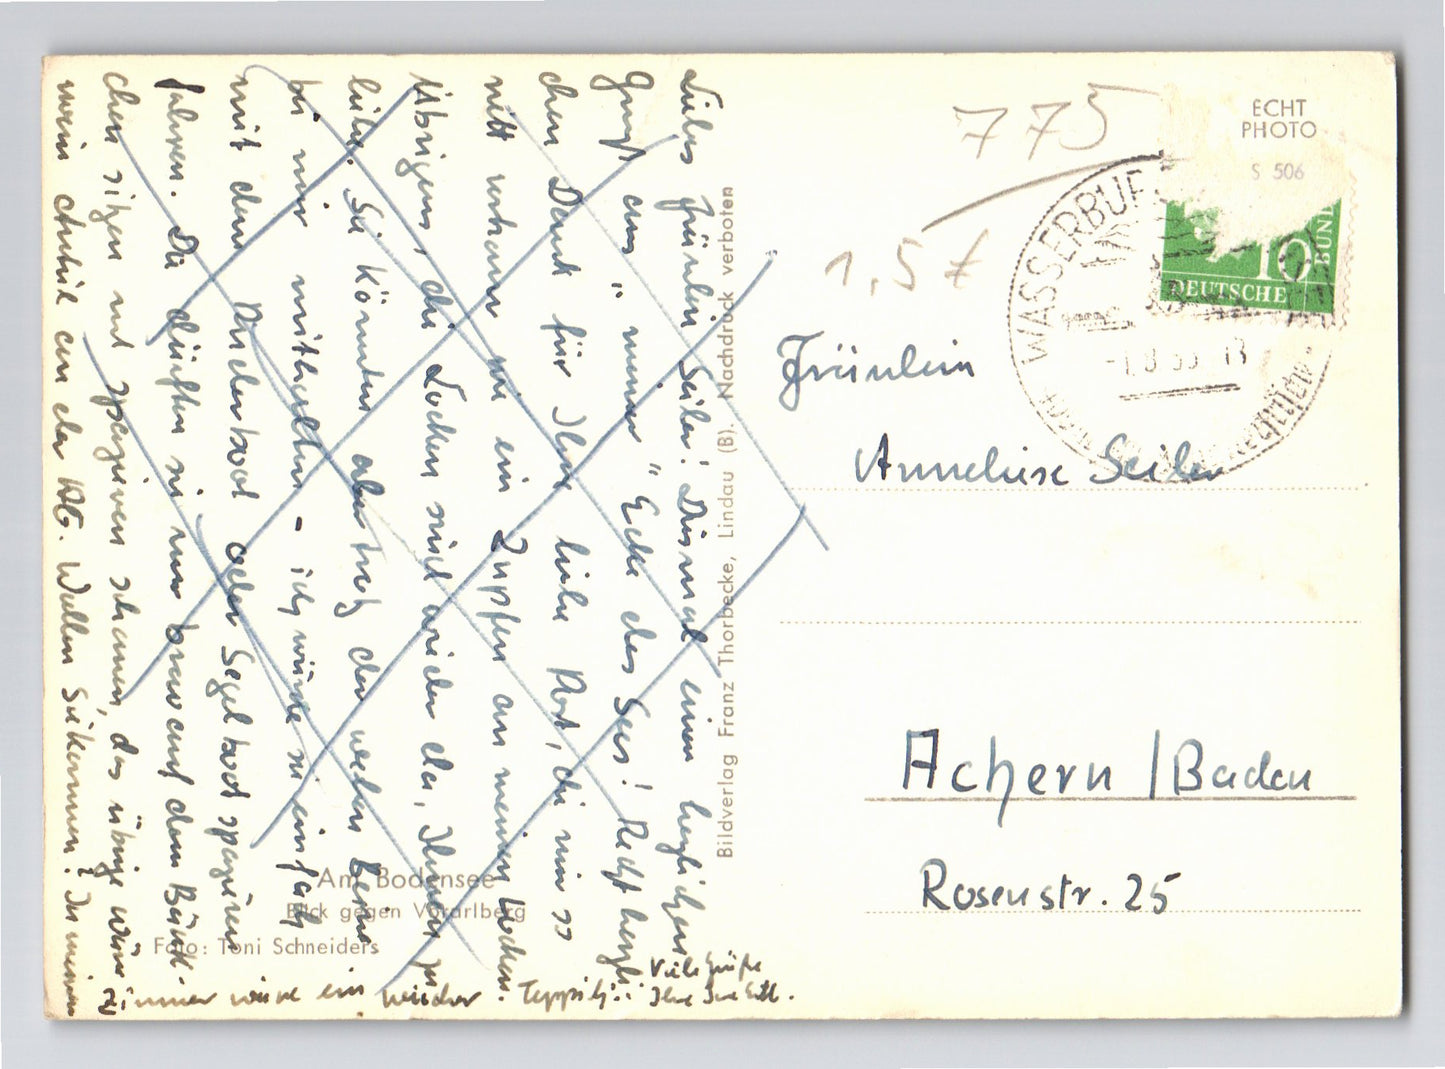 Liebes Fräulein Seiler! Diesmal einen herzlichen
Gruß aus "meiner" Ecke des Sees! Recht herzli-
chen Dank für Ihre liebe Art, die mir so
nett
ein Zupfen an meinen Locken.
Übrigens, die Locken sind wieder da, Ihnen zu
liebe. Sie könnten aber trotz der
bei mir mithalten - ich würde sie einfach
mit dem Ruderboot oder Segelboot spazieren
fahren. Da dürften sie nur brav auf dem Bänk-
chen sitzen und spazieren schauen, das übrige wäre
mein
an der
Wollen Sie kommen? In meinem
Zimmer wäre ein weicher Teppich!
Viele Grüße
Ihre
Am Bodensee
Blick gegen Vorarlberg
Foto: Toni Schneiders
Bildverlag Franz Thorbecke, Lindau (B). Nachdruck verboten
775
1,5 €
ECHT
PHOTO
S 506
10
BUND
DEUTSCHE
WASSERBUR
Fräulein
Anneliese Seiler
Achern / Baden
Rosenstr. 25